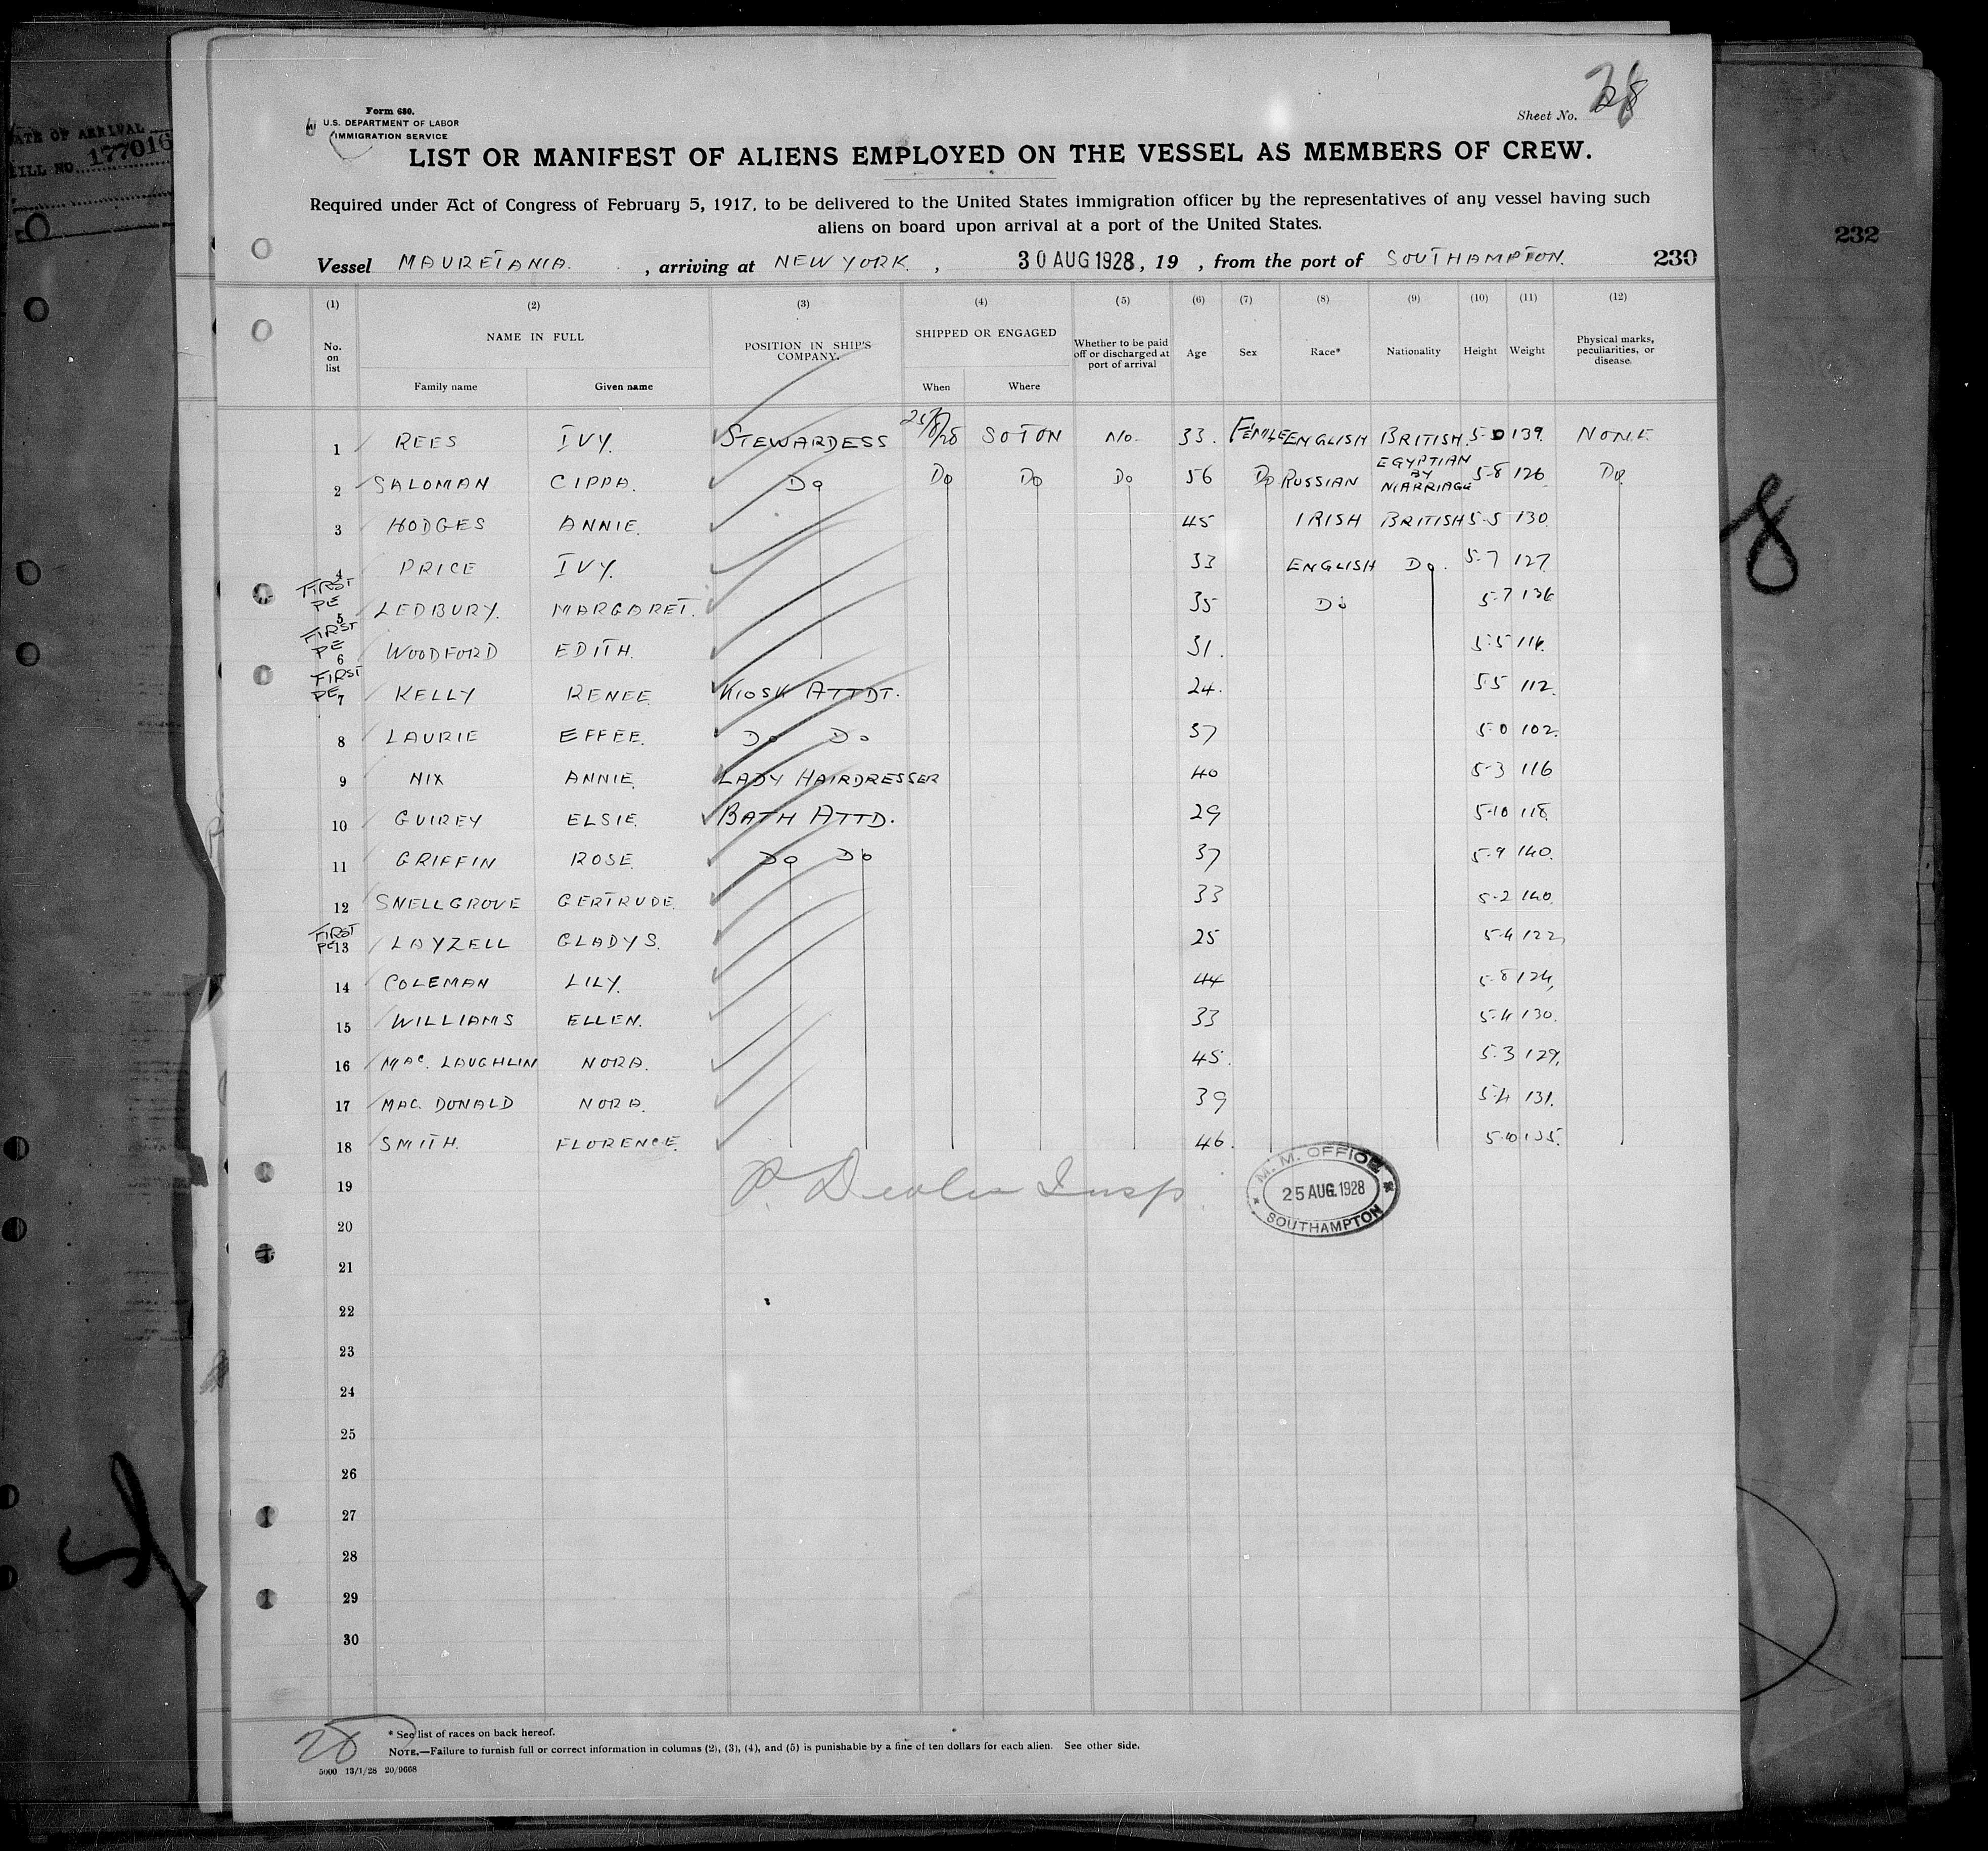 Form 680.
U.S. DEPARTMENT OF LABOR
IMMIGRATION SERVICE
Sheet No. 28
LIST OR MANIFEST OF ALIENS EMPLOYED ON THE VESSEL AS MEMBERS OF CREW.
Required under Act of Congress of February 5, 1917, to be delivered to the United States immigration officer by the representatives of any vessel having such
aliens on board upon arrival at a port of the United States.
Vessel MAURETANIA. , arriving at NEW YORK. , 30 AUG 1928, 19 , from the port of SOUTHAMPTON. 230
(1) (2) (3) (4) (5) (6) (7) (8) (9) (10) (11) (12)
No. on list NAME IN FULL POSITION IN SHIP'S COMPANY. SHIPPED OR ENGAGED Whether to be paid off or discharged at port of arrival Age Sex Race* Nationality Height Weight Physical marks, peculiarities, or disease.
Family name Given name When Where
1 REES IVY. STEWARDESS 25/8/28 SOTON NO 33. FEMLE ENGLISH BRITISH. 5-0 139. NONE
2 SALOMAN CIPPA. Do Do Do Do 56 Do RUSSIAN EGYPTIAN BY MARRIAGE 5-8 126 Do.
3 HODGES ANNIE. 45 IRISH BRITISH 5-5 130.
4 PRICE IVY. 33 ENGLISH Do. 5-7 127.
FIRST PE 5 LEDBURY. MARGARET. 35 Do 5-7 136
FIRST PE 6 WOODFORD EDITH. 31. 5-5 114.
FIRST PE 7 KELLY RENEE. KIOSK ATTDT. 24. 5-5 112.
8 LAURIE EFFEE. Do Do 37 5-0 102.
9 NIX ANNIE. LADY HAIRDRESSER 40 5-3 116
10 GUIREY ELSIE. BATH ATTD. 29 5-10 118.
11 GRIFFIN ROSE. Do Do 37 5-9 140.
12 SNELLGROVE GERTRUDE. 33 5-2 140.
FIRST PE 13 LAYZELL GLADYS. 25 5-4 122,
14 COLEMAN LILY. 44 5-8 124,
15 WILLIAMS ELLEN. 33 5-4 130.
16 MAC. LAUGHLIN NORA. 45. 5-3 129.
17 MAC. DONALD NORA. 39 5-4 131.
18 SMITH. FLORENCE. 46. 5-10 135.
19
20
21
22
23
24
25
26
27
28
29
30
Insp
M. M. OFFICE
25 AUG. 1928
SOUTHAMPTON
28
* See list of races on back hereof.
NOTE.—Failure to furnish full or correct information in columns (2), (3), (4), and (5) is punishable by a fine of ten dollars for each alien. See other side.
5000 13/1/28 20/9668
DATE OF ARRIVAL
BILL NO. 177016
232
8